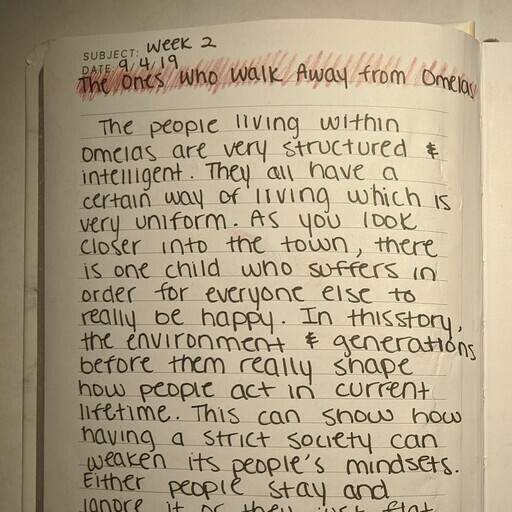 SUBJECT: Week 2
DATE: 9/4/19
The Ones Who Walk Away from Omelas
The people living within
Omelas are very structured &
intelligent. They all have a
certain way of living which is
very uniform. As you look
closer into the town, there
is one child who suffers in
order for everyone else to
really be happy. In this story,
the environment & generations
before them really shape
how people act in current
lifetime. This can show how
having a strict society can
weaken its people's mindsets.
Either people stay and
ignore it or they just flat